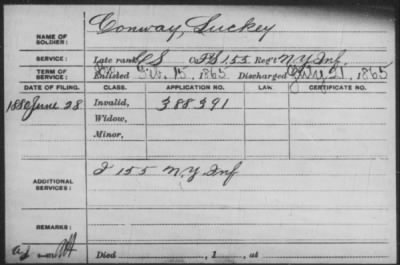 NAME OF SOLDIER: Conway, Luckey
SERVICE: Late rank Co. F&S 155 Reg't N.Y. Inf.
TERM OF SERVICE: Enlisted 15, 1865 Discharged July 21, 1865
DATE OF FILING. CLASS. APPLICATION NO. LAW. CERTIFICATE NO.
1880 June 28 Invalid, 388391
Widow,
Minor,
ADDITIONAL SERVICES: I 155 N.Y. Inf
REMARKS:
Died , 1 , at